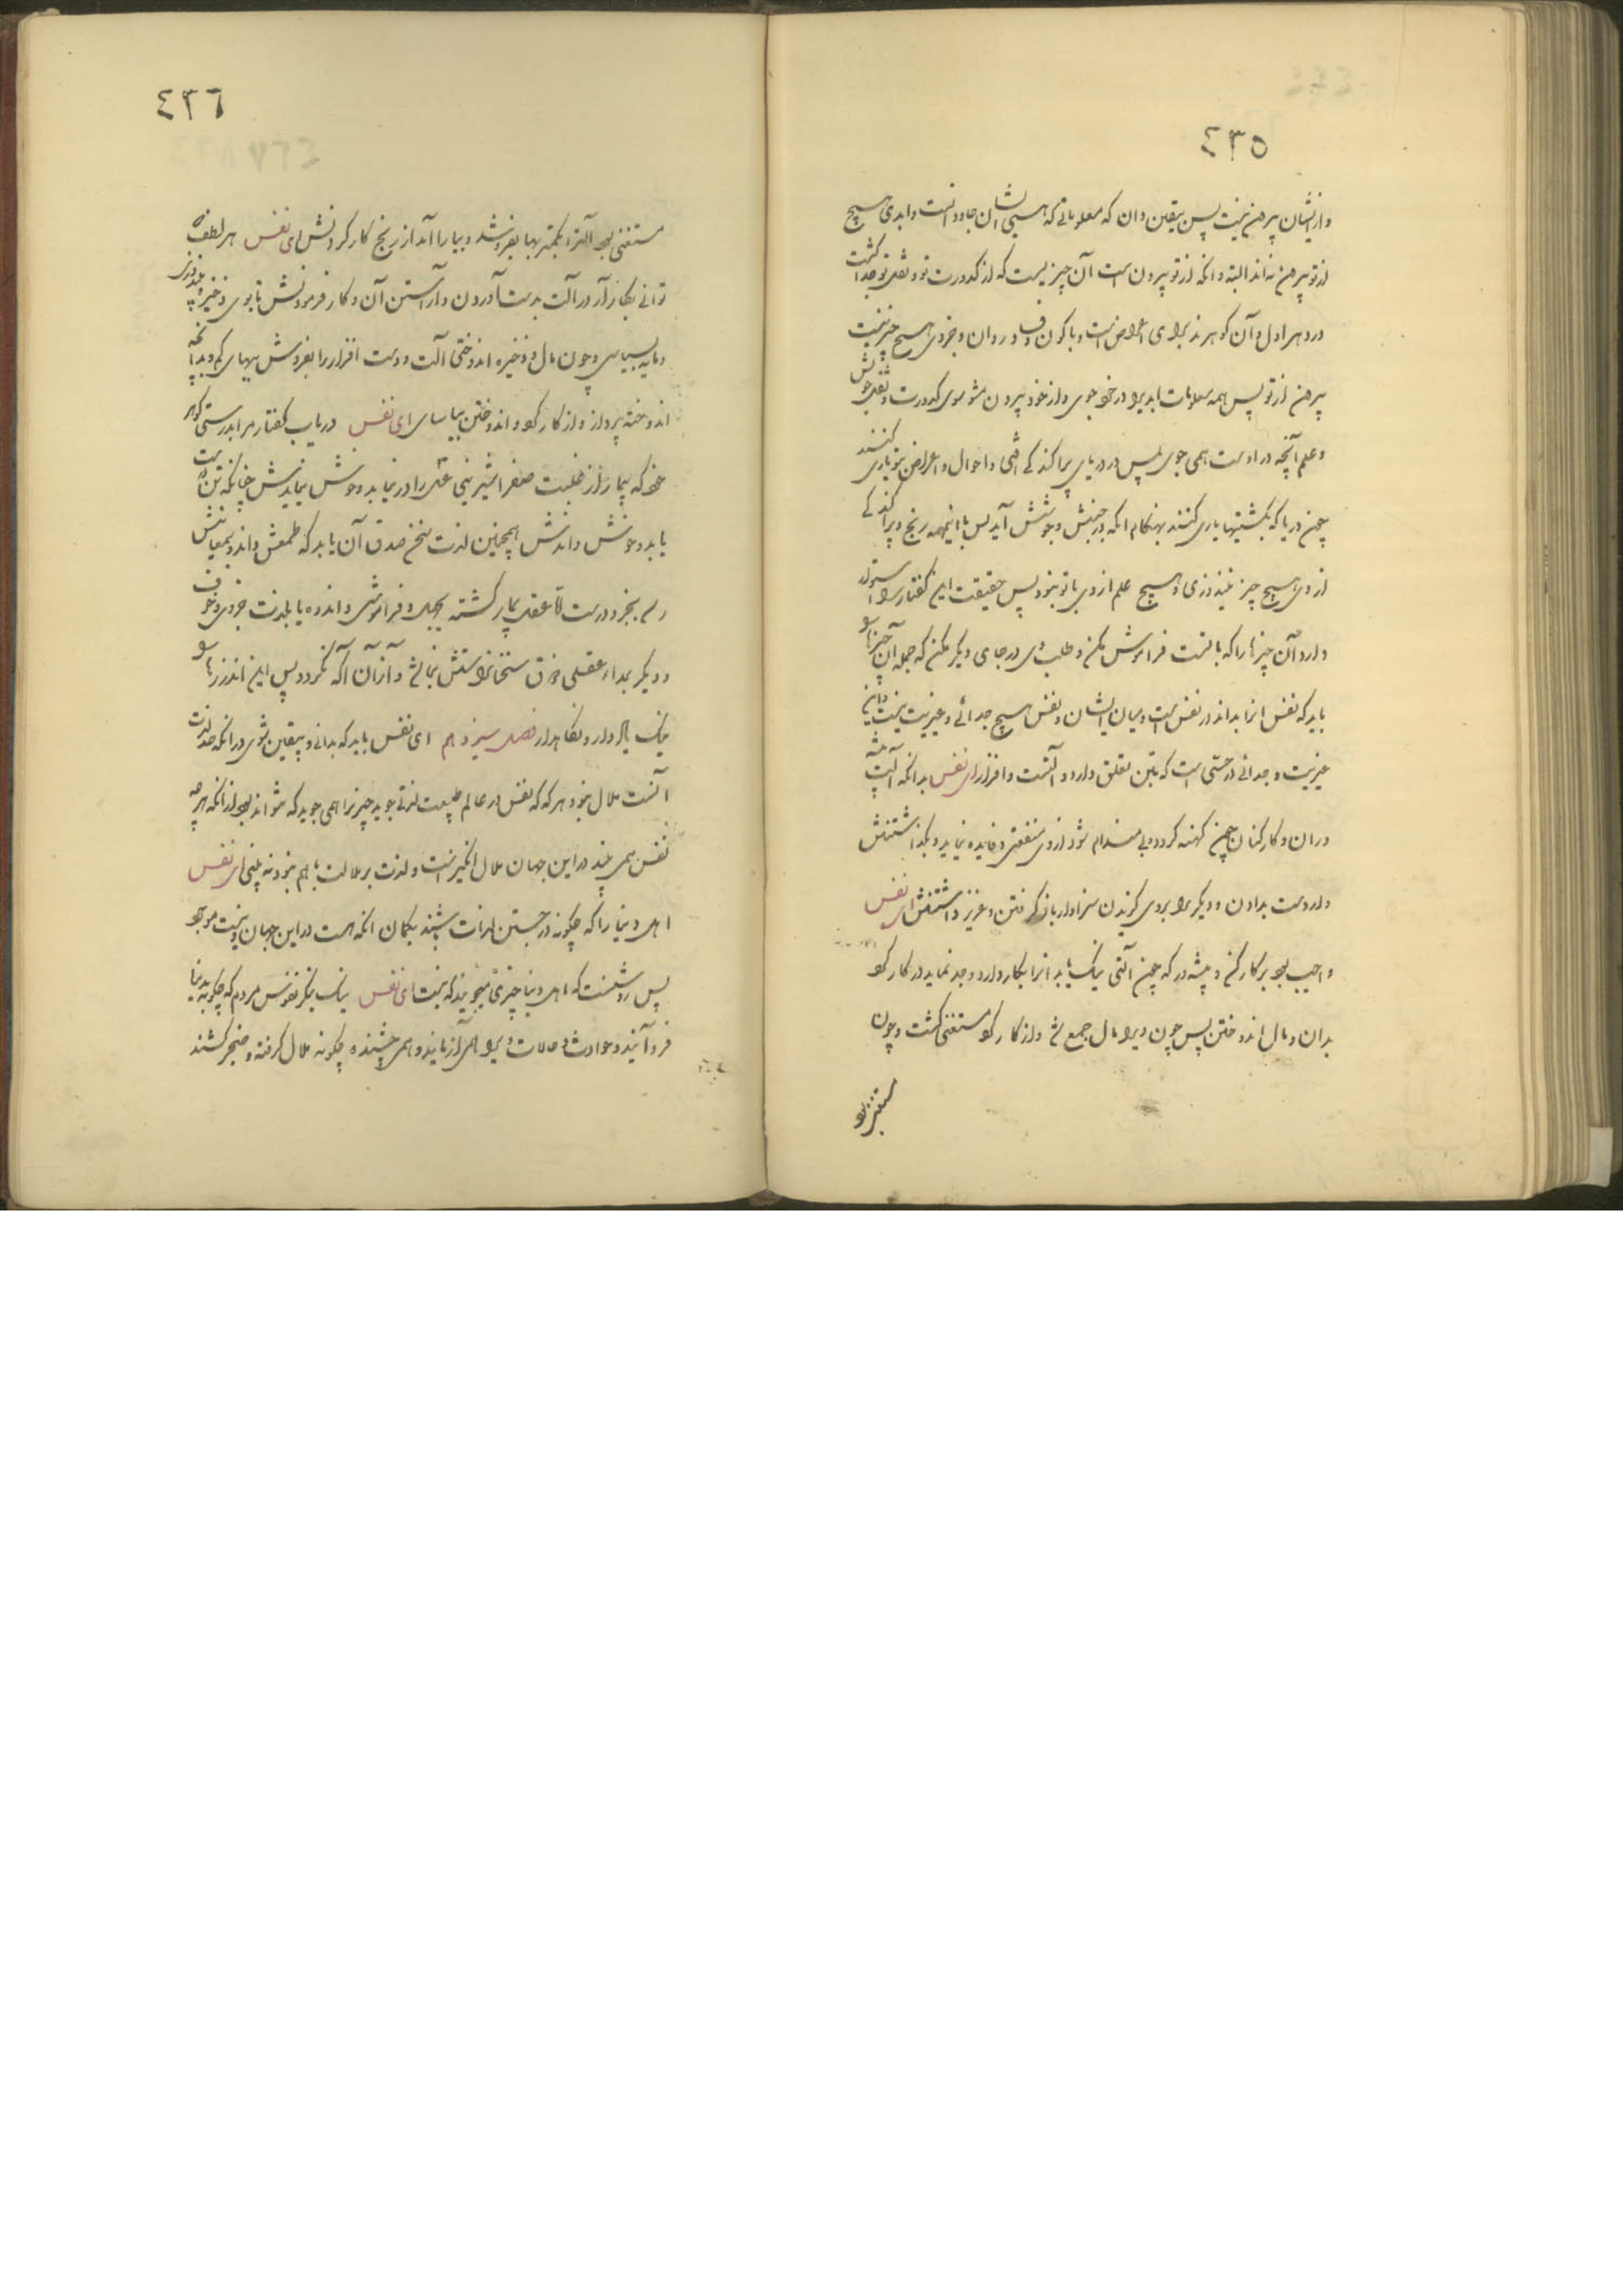 ٤٣٥
وازیشان بیرون نیست پس بیقین دان که معلوماتی که هستی‌شان جاودانست و ابدی هیچ
از تو بیرون نه‌اند البته و آنکه از تو بیرون است آن چیزیست که از کدورت تو و ثقل تو جدا گشت
در دهر اول و آن گوهر پذیرای اعراض است و با کون و فساد روان و جز وی هیچ چیز نیست
بیرون از تو پس همه معلومات ابدیرا در خود جوی و از خود بیرون مشو سوی کدورت و ثقل خویش
و علم آنچه در اوست همی جوی پس در دریای پراکندگی افتی و احوال و اعراض بتو بازی کنند
چون دریا که بکشتیها بازی کنند بهنگام آنکه در جنبش و جوشش آید پس با اینهمه رنج و پراکندگی
از وی هیچ چیز نیندوزی و هیچ علم از وی با تو نبود پس حقیقت این گفتار را استوار
دار و آن چیزها را که با تست فراموش مکن و طلب وی در جای دیگر مکن که جمله آن چیزها را
باید که نفس آنرا بداند در نفس است و میان ایشان و نفس هیچ جدائی و غیریت نیست
غیریت و جدائی در حسّی است که بتن تعلق دارد و آلتست و افزار ای نفس بدانکه آلت پیشه
وران و کارکنان چون کهنه گردد و بی اندام شود از وی منفعتی و فایده نیاید و بگذاشتنش
و از دست بدادن و دیگر را بر وی گزیدن سزاوار باز گرفتن و عزیز داشتنش ای نفس
واجب بود بر کارکن و پیشه‌ور که چون آلتی نیک یابد آنرا بکار دارد و جد نماید در کار کرد
بدان و مال اندوختن پس چون ویرا مال جمع شد و از کار کرد مستغنی گشت و چون
مستغنی بود
٤٣٦
مستغنی بود آلترا بکمتر بها بفروشد و بیاراآمد از رنج کار کردنش ای نفس هر لطف که
توانی بکار آر در آلت بدست آوردن و آراستن آن و کار فرمودنش تا بوی ذخیره بیندوزی
و مایه بسیاسی و چون مال و ذخیره اندوختی آلت و دست افزار را بفروش ببهای کم و بدانچه
اندوخته پرداز و از کار کرد و اندوختن بیاسای ای نفس دریاب گفتار مرا بدرستی گوهر
خود که بیمار از غلبت صفرا شیرینی عسل را در نیابد و خوش نیایدش چنانکه تن درست
یابد و خوش داندش همچنین لذت سخن صدق آن یابد که طعمش داند و بمعانیش
رسد بخرد درست نه عقل بیمار گشته بجهل و فراموشی و اندوه یا بلذت خوردن و خوف
و دیگر بمدار عقلی فرق سخنانرا نتواند و از آن آگه نگردد پس این اندرزها را
نیک یاد دار و نگاهدار فصل سیزدهم ای نفس باید که بدانی و بیقین شوی در آنکه ضد لذت
آنست ملال بود هر که که نفس در عالم طبیعت لذتی جوید چیزیرا همی جوید که نتواند بود از آنکه هر چه
نفس همی بیند در این جهان ملال انگیز است و لذت بر ملالت با هم نبود نه بینی ای نفس
اهل دنیا را که چگونه در جستن لذات باشند بگمان آنکه هست در این جهان و نیست موجود
پس روشنست که اهل دنیا چیزی میجویند که نیست ای نفس نیک بنگر نفوس مردم که چگونه بدنیا
فرو آیند و حوادث و حالات ویرا همی آزمایند و همی چشند و چگونه ملال گرفته و ضجر گشتند